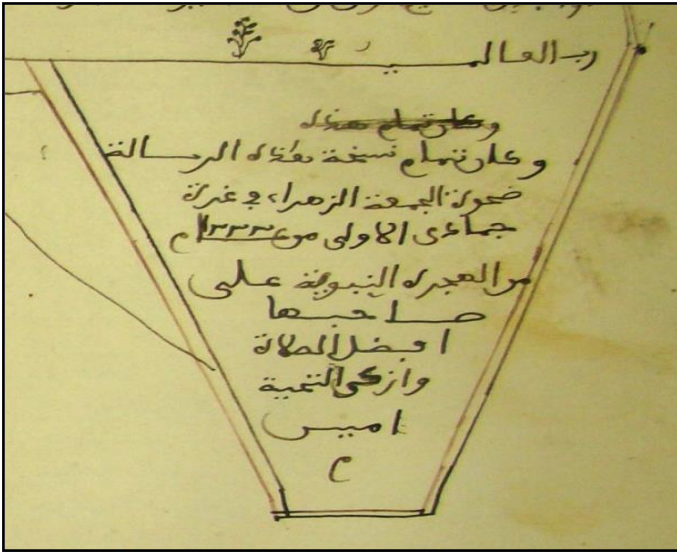 رب العالمين
وكان تمام هذه
وكان تمام نسخة هذه الرسالة
ضحوة الجمعة الزهراء في غرة
جمادى الاولى من عام
من الهجرة النبوية على
صاحبها
افضل الصلاة
وازكى التحية
امين
م